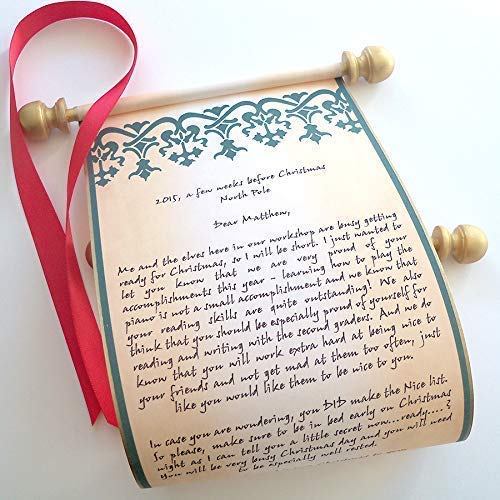 2015, a few weeks before Christmas
North Pole
Dear Matthew,
Me and the elves here in our workshop are busy getting
ready for Christmas, so I will be short. I just wanted to
let you know that we are very proud of your
accomplishments this year - learning how to play the
piano is not a small accomplishment and we know that
your reading skills are quite outstanding! We also
think that you should be especially proud of yourself for
reading and writing with the second graders. And we do
know that you will work extra hard at being nice to
your friends and not get mad at them too often, just
like you would like them to be nice to you.
In case you are wondering, you DID make the Nice list.
So please, make sure to be in bed early on Christmas
night as I can tell you a little secret now...ready.... :
You will be very busy Christmas day and you will need
to be especially well rested.